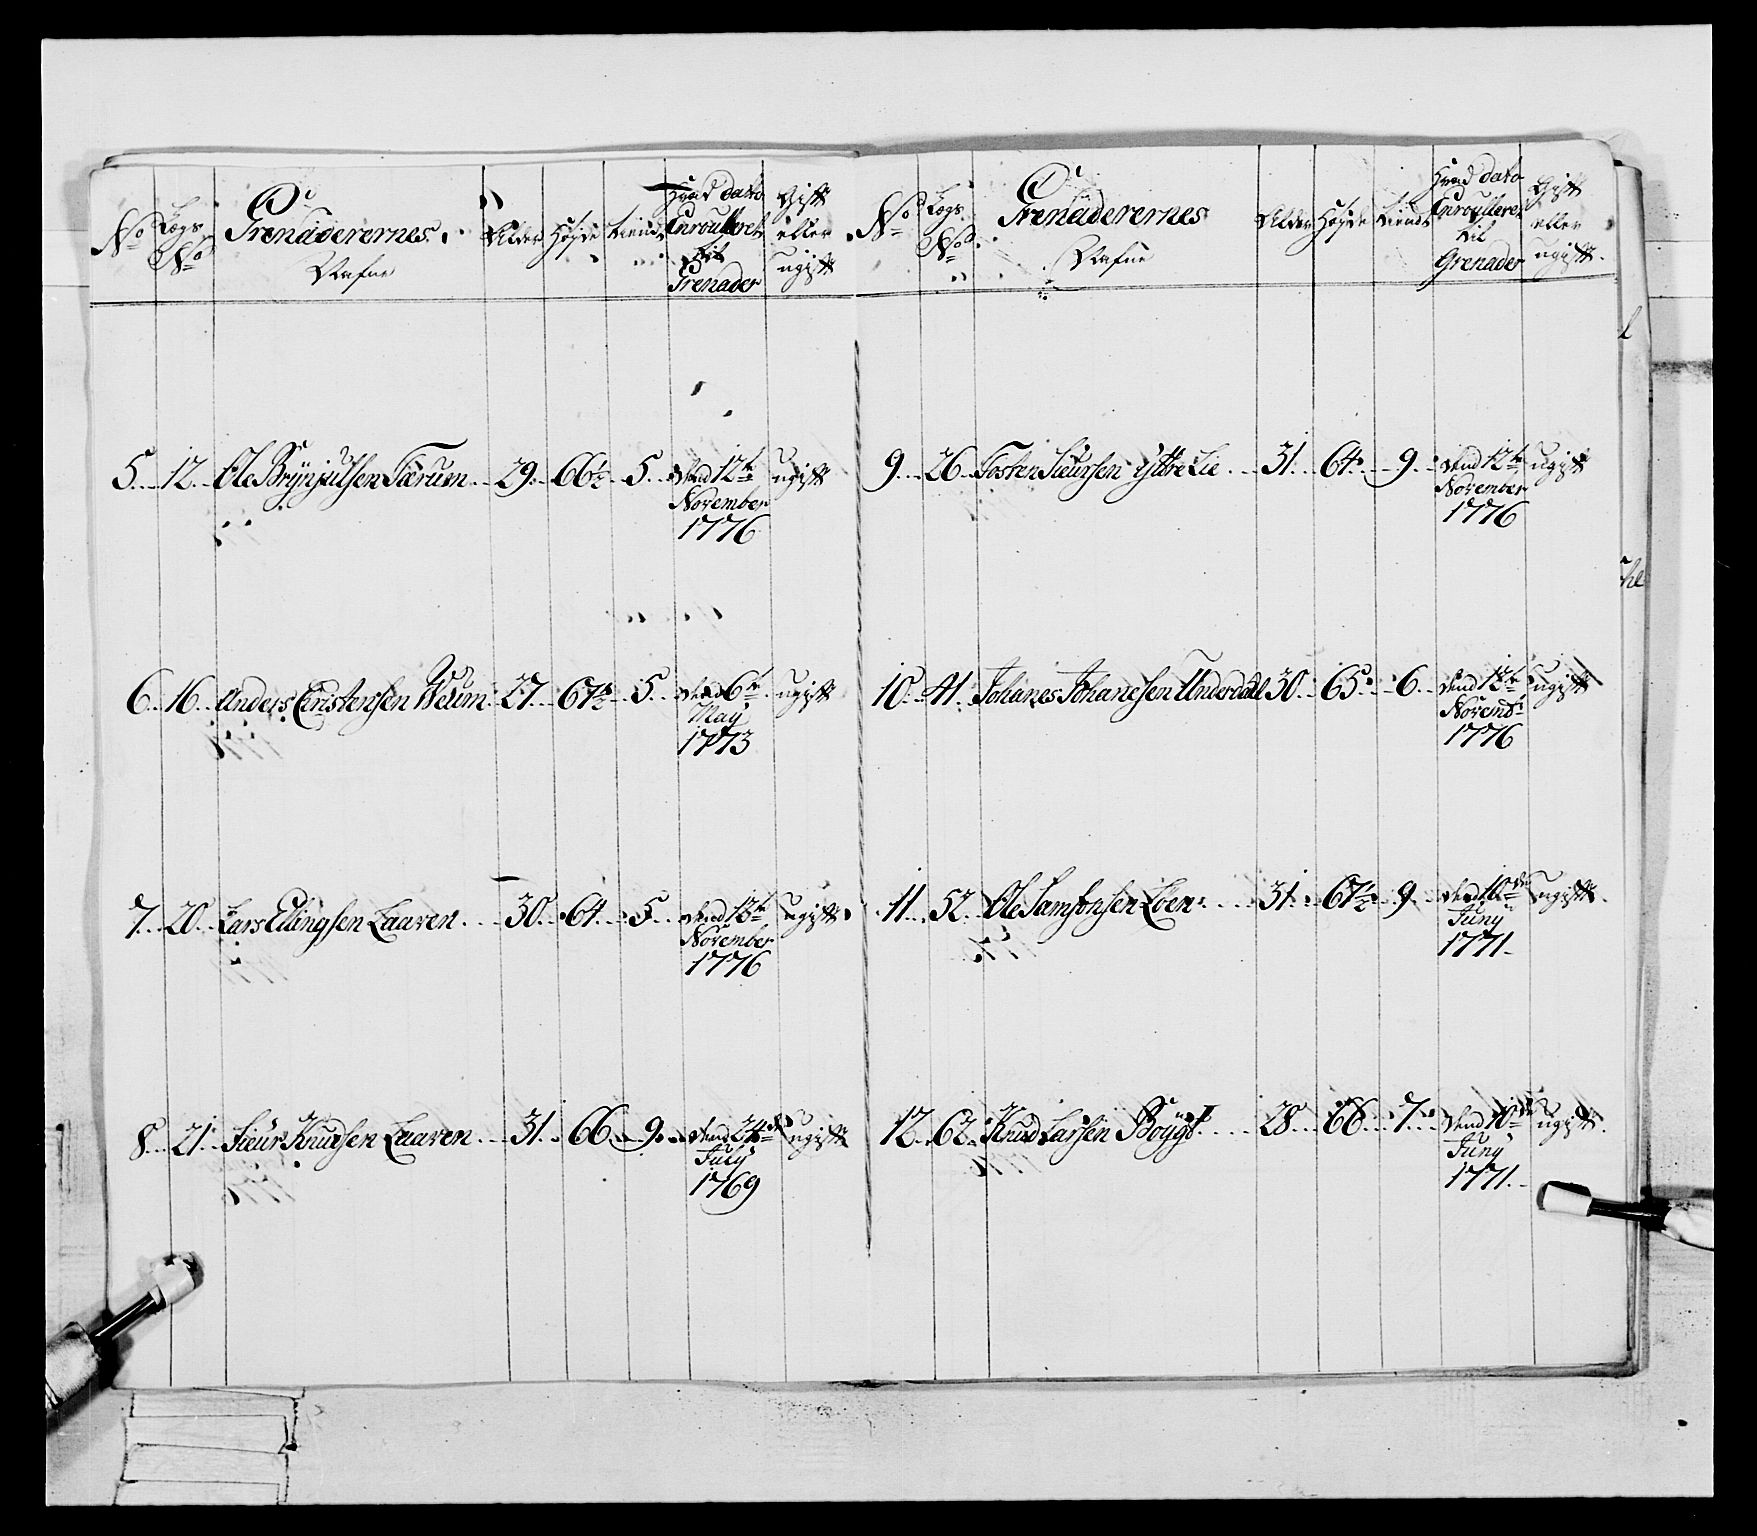 No
Legs No
Grenaderernes Nafne
Alder
Høyde
tiennt
Hvad dato Enroulleret til Grenader
Gift eller ugift
5 12 Ole Brÿnjulsen Særum 29 66½ 5 dend 12te November 1776 ugift
6 16 Anders Cristensen Weum 27 67½ 5 dend 6te Maÿ 1773 ugift
7 20 Lars Ellingsen Laaven 30 64 5 dend 13te November 1776 ugift
8 21 Sieur Knudsen Laaven 31 66 9 dend 24de Julÿ 1769 ugift
No
Legs No
Grenaderernes Nafne
Alder
Høyde
tiennt
Hvad dato Enroulleret til Grenader
Gift eller ugift
9 26 Tosten Siursen ÿttre Lie 31 64 9 dend 12te November 1776 ugift
10 41 Johanes Johanesen Underdall 30 65 6 dend 13te Novembr 1776 ugift
11 52 Ole Samsonsen Løen 31 67½ 9 dend 10de Junÿ 1771 ugift
12 62 Knud Larsen Bøygt 28 66 7 dend 10de Junÿ 1771 ugift